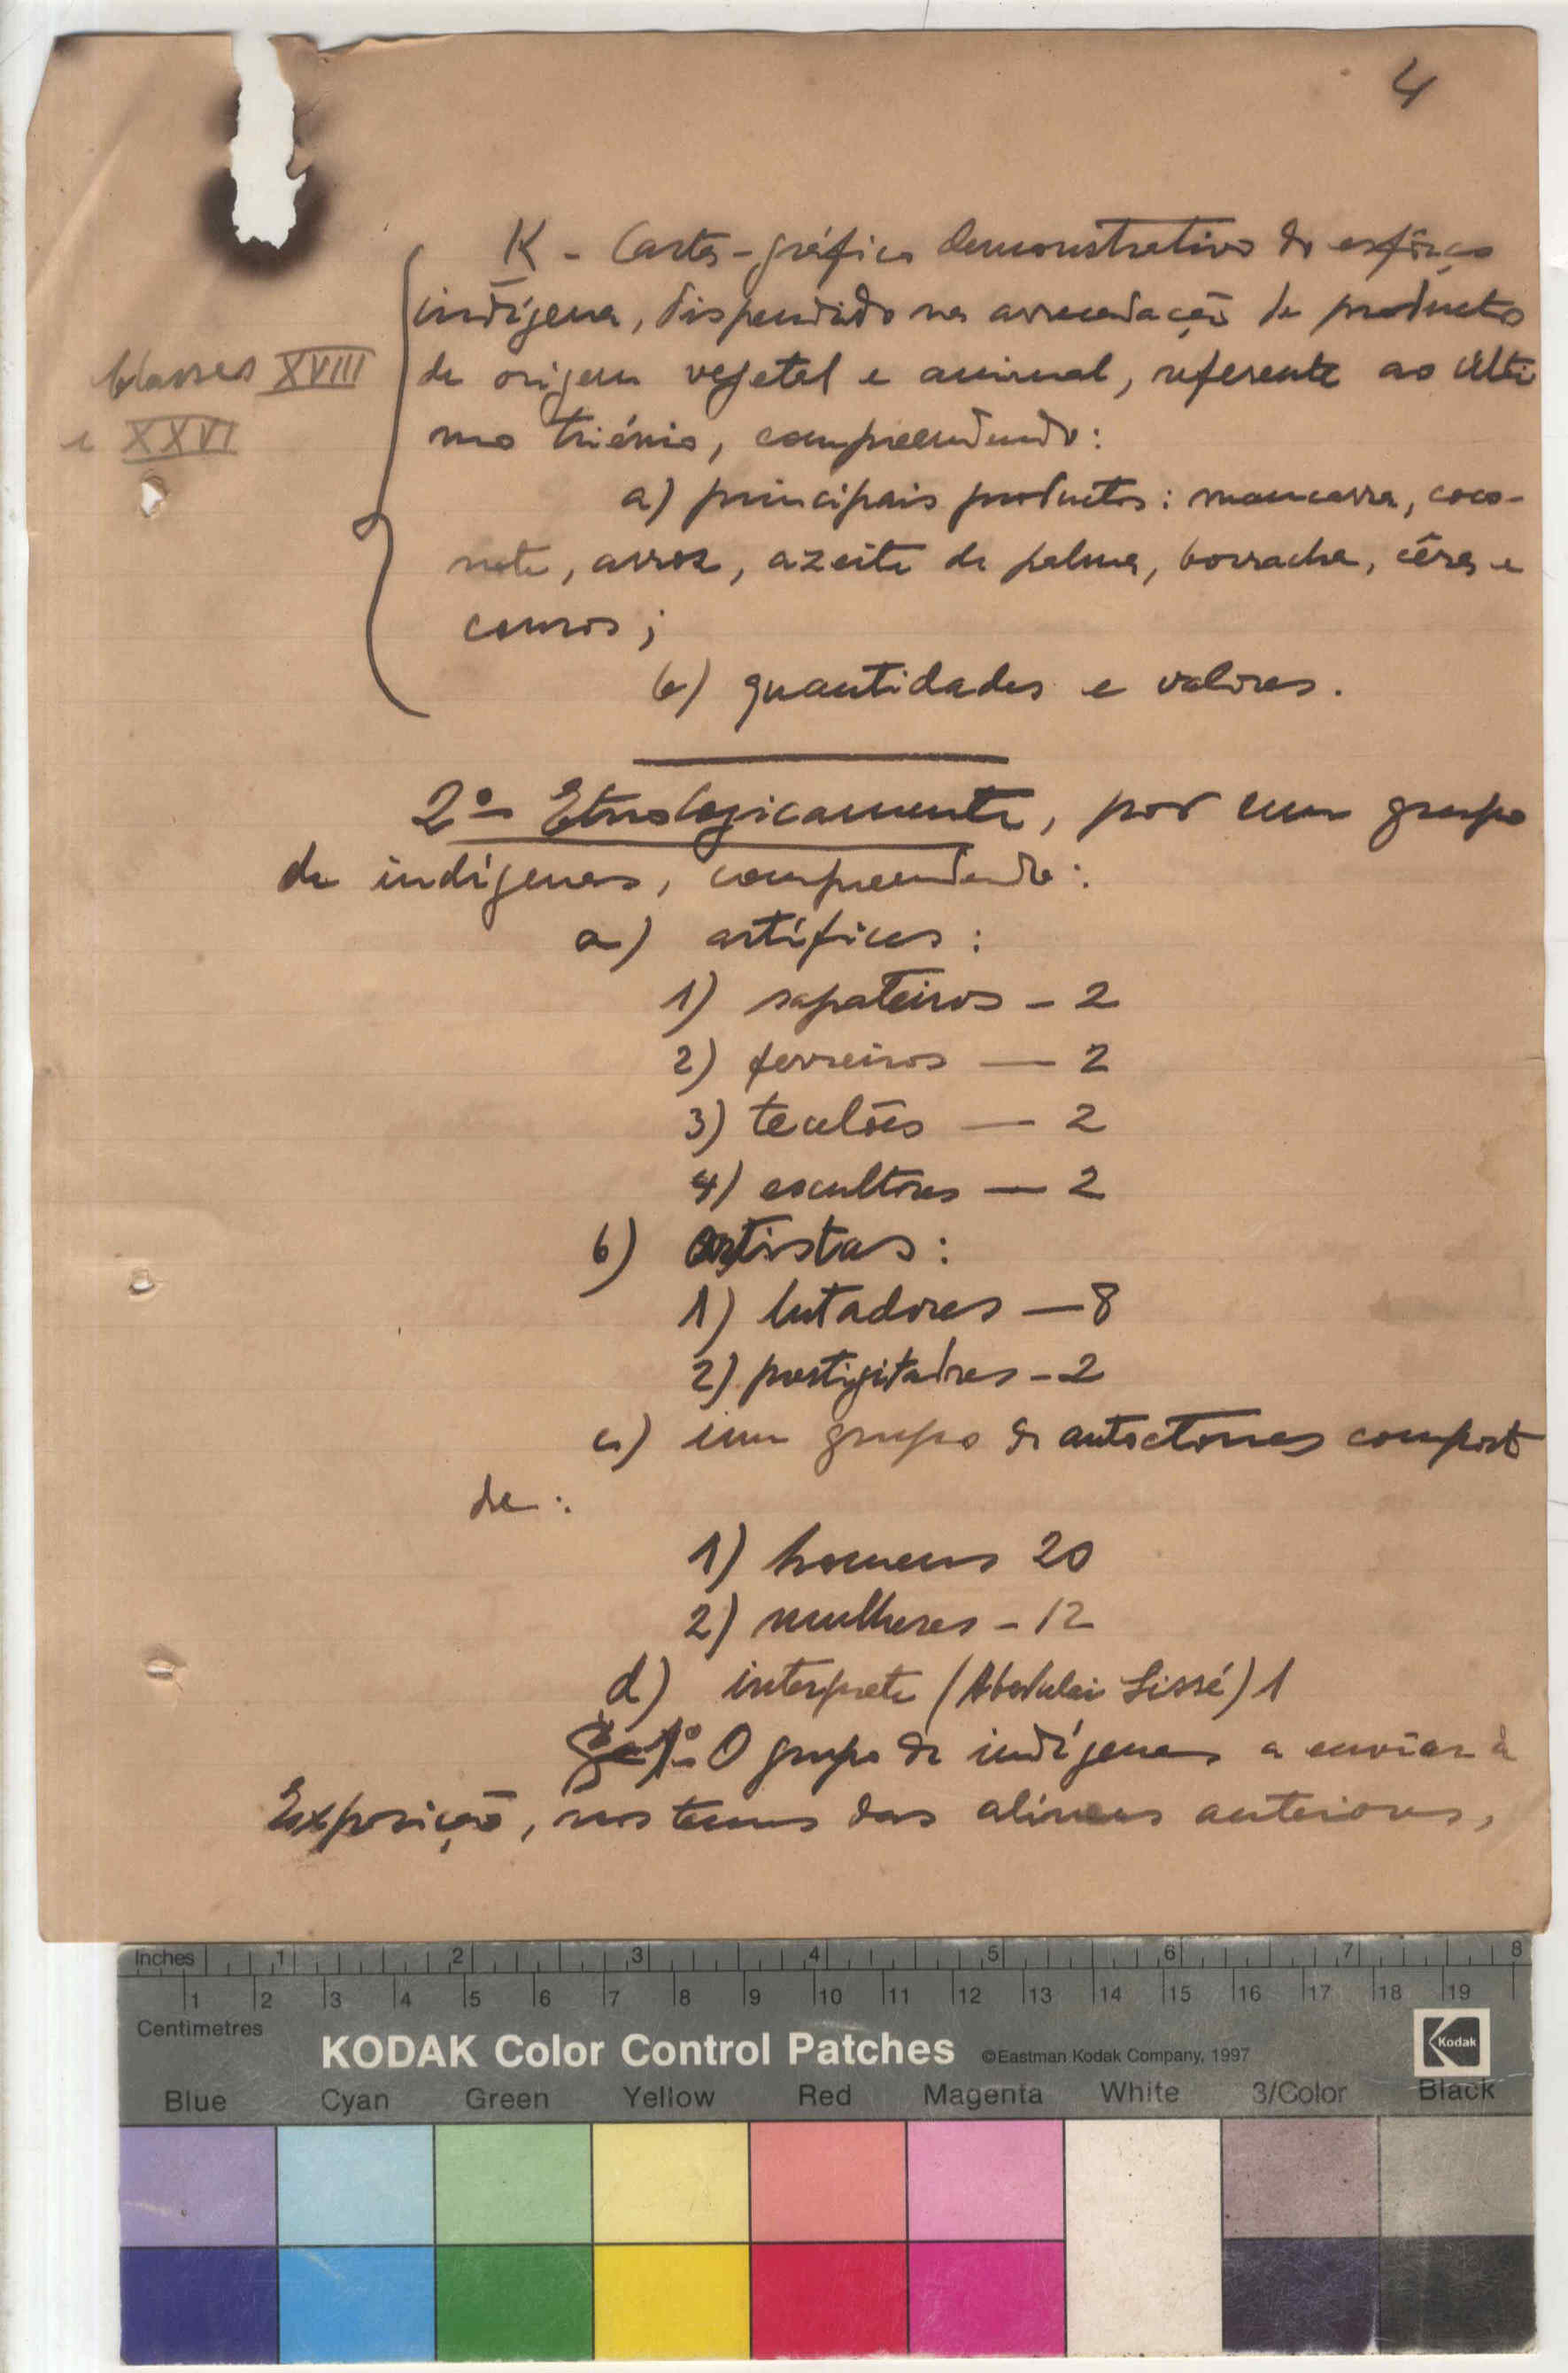 4
K - Carta-gráfica demonstrativa do esfôrço
indígena, dispendido na arrecadação de productos
Classes XVIII
de origem vegetal e animal, referente ao últi
e XXVI
mo triénio, compreendendo:
a) principais productos: mancarra, coco-
note, arroz, azeite de palma, borracha, cêra e
couros;
b) quantidades e valores.
2º Etnologicamente, por um grupo
de indígenas, compreendendo:
a) artífices:
1) sapateiros - 2
2) ferreiros — 2
3) tecelões — 2
4) escultores — 2
b) artistas:
1) lutadores — 8
2) prestigitadores - 2
c) um grupo de autoctones composto
de:
1) homens 20
2) mulheres - 12
d) interprete (Abdulai Sissé) 1
§ 1º O grupo de indígenas a enviar à
Exposição, nos termos das alineas anteriores,
Inches 1 2 3 4 5 6 7 8
1 2 3 4 5 6 7 8 9 10 11 12 13 14 15 16 17 18 19
Centimetres
KODAK Color Control Patches ©Eastman Kodak Company, 1997 Kodak
Blue Cyan Green Yellow Red Magenta White 3/Color Black